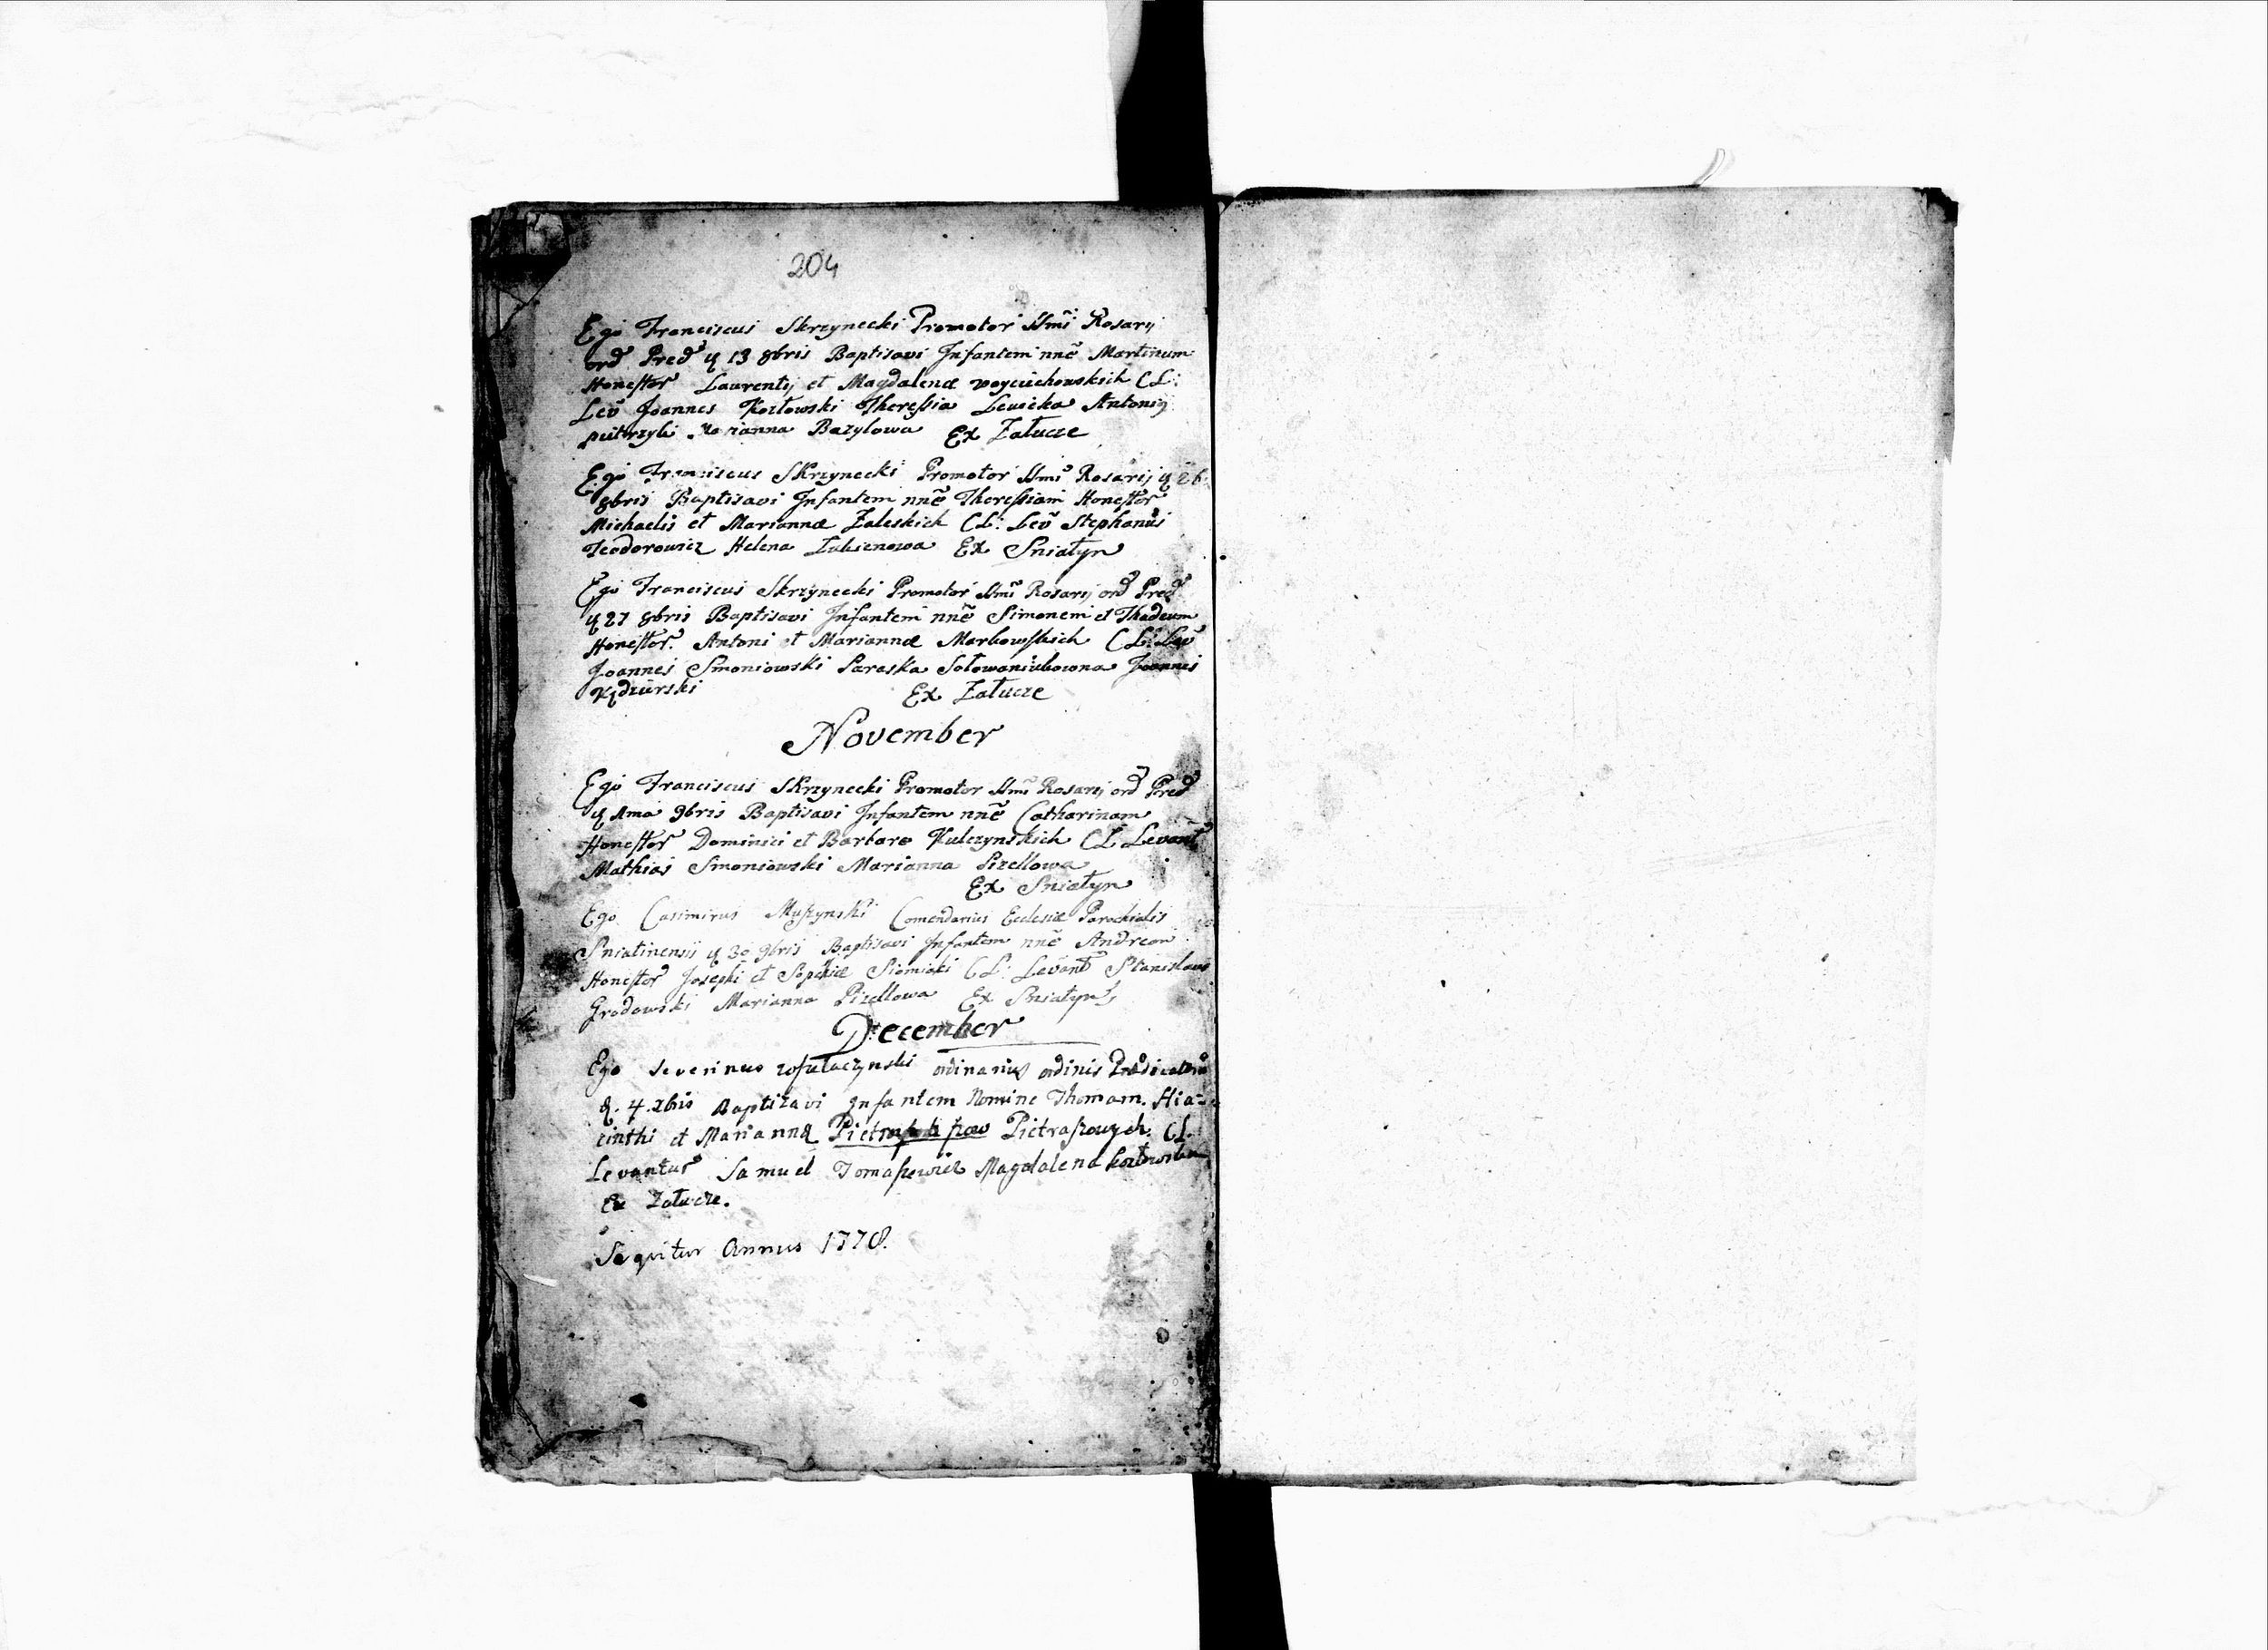 204
Ego Franciscus Skrzynecki Promotor SSmi Rosarij
ord Pred 13 8bris Baptisavi Infantem nnẽ Martinum
Honestor Laurentij et Magdalenæ Woyciechowskich CL:
Lev Joannes Kozłowski Theressia Levicka Antonij
Marianna Bazylowa Ex Załucze
Ego Franciscus Skrzynecki Promotor SSmi Rosarij 26
8bris Baptisavi Infantem nnẽ Theressiam Honestor
Michaelis et Mariannæ Zaleskich CL: Lev Stephanus
Teodorowicz Helena Ex Sniatyn
Ego Franciscus Skrzynecki Promotor SSmi Rosarij ord Pred
27 8bris Baptisavi Infantem nnẽ Simonem et Thadeum
Honestor. Antoni et Mariannæ Markowskich CL: Lev
Joannes Smoniowski Paraska Joannes
Ex Załucze
November
Ego Franciscus Skrzynecki Promotor SSmi Rosarij ord Pred
1ma 9bris Baptisavi Infantem nnẽ Catharinam
Honestor Dominici et Barbare Kulczynskich CL Levant
Mathias Smoniowski Marianna Pizellowa
Ex Sniatyn
Ego Casimirus Muszynski Comendarius Ecclesiæ Parochialis
Sniatinensis 30 9bris Baptisavi Infantem nnẽ Andream
Honestor Josephi et Sophiæ CL: Levant Stanislaus
Grodowski Marianna Pizellowa Ex Sniatyn
December
Ego Severinus ordinarius ordinis Prædicator
4. Xbris Baptizavi Infantem Nomine Thomam. Hia-
cinthi et Mariannæ Pietraszowych. CL.
Levantur Samuel Tomaszewicz Magdalena Kozłowska
Ex Załucze.
Sequitur Annus 1778.